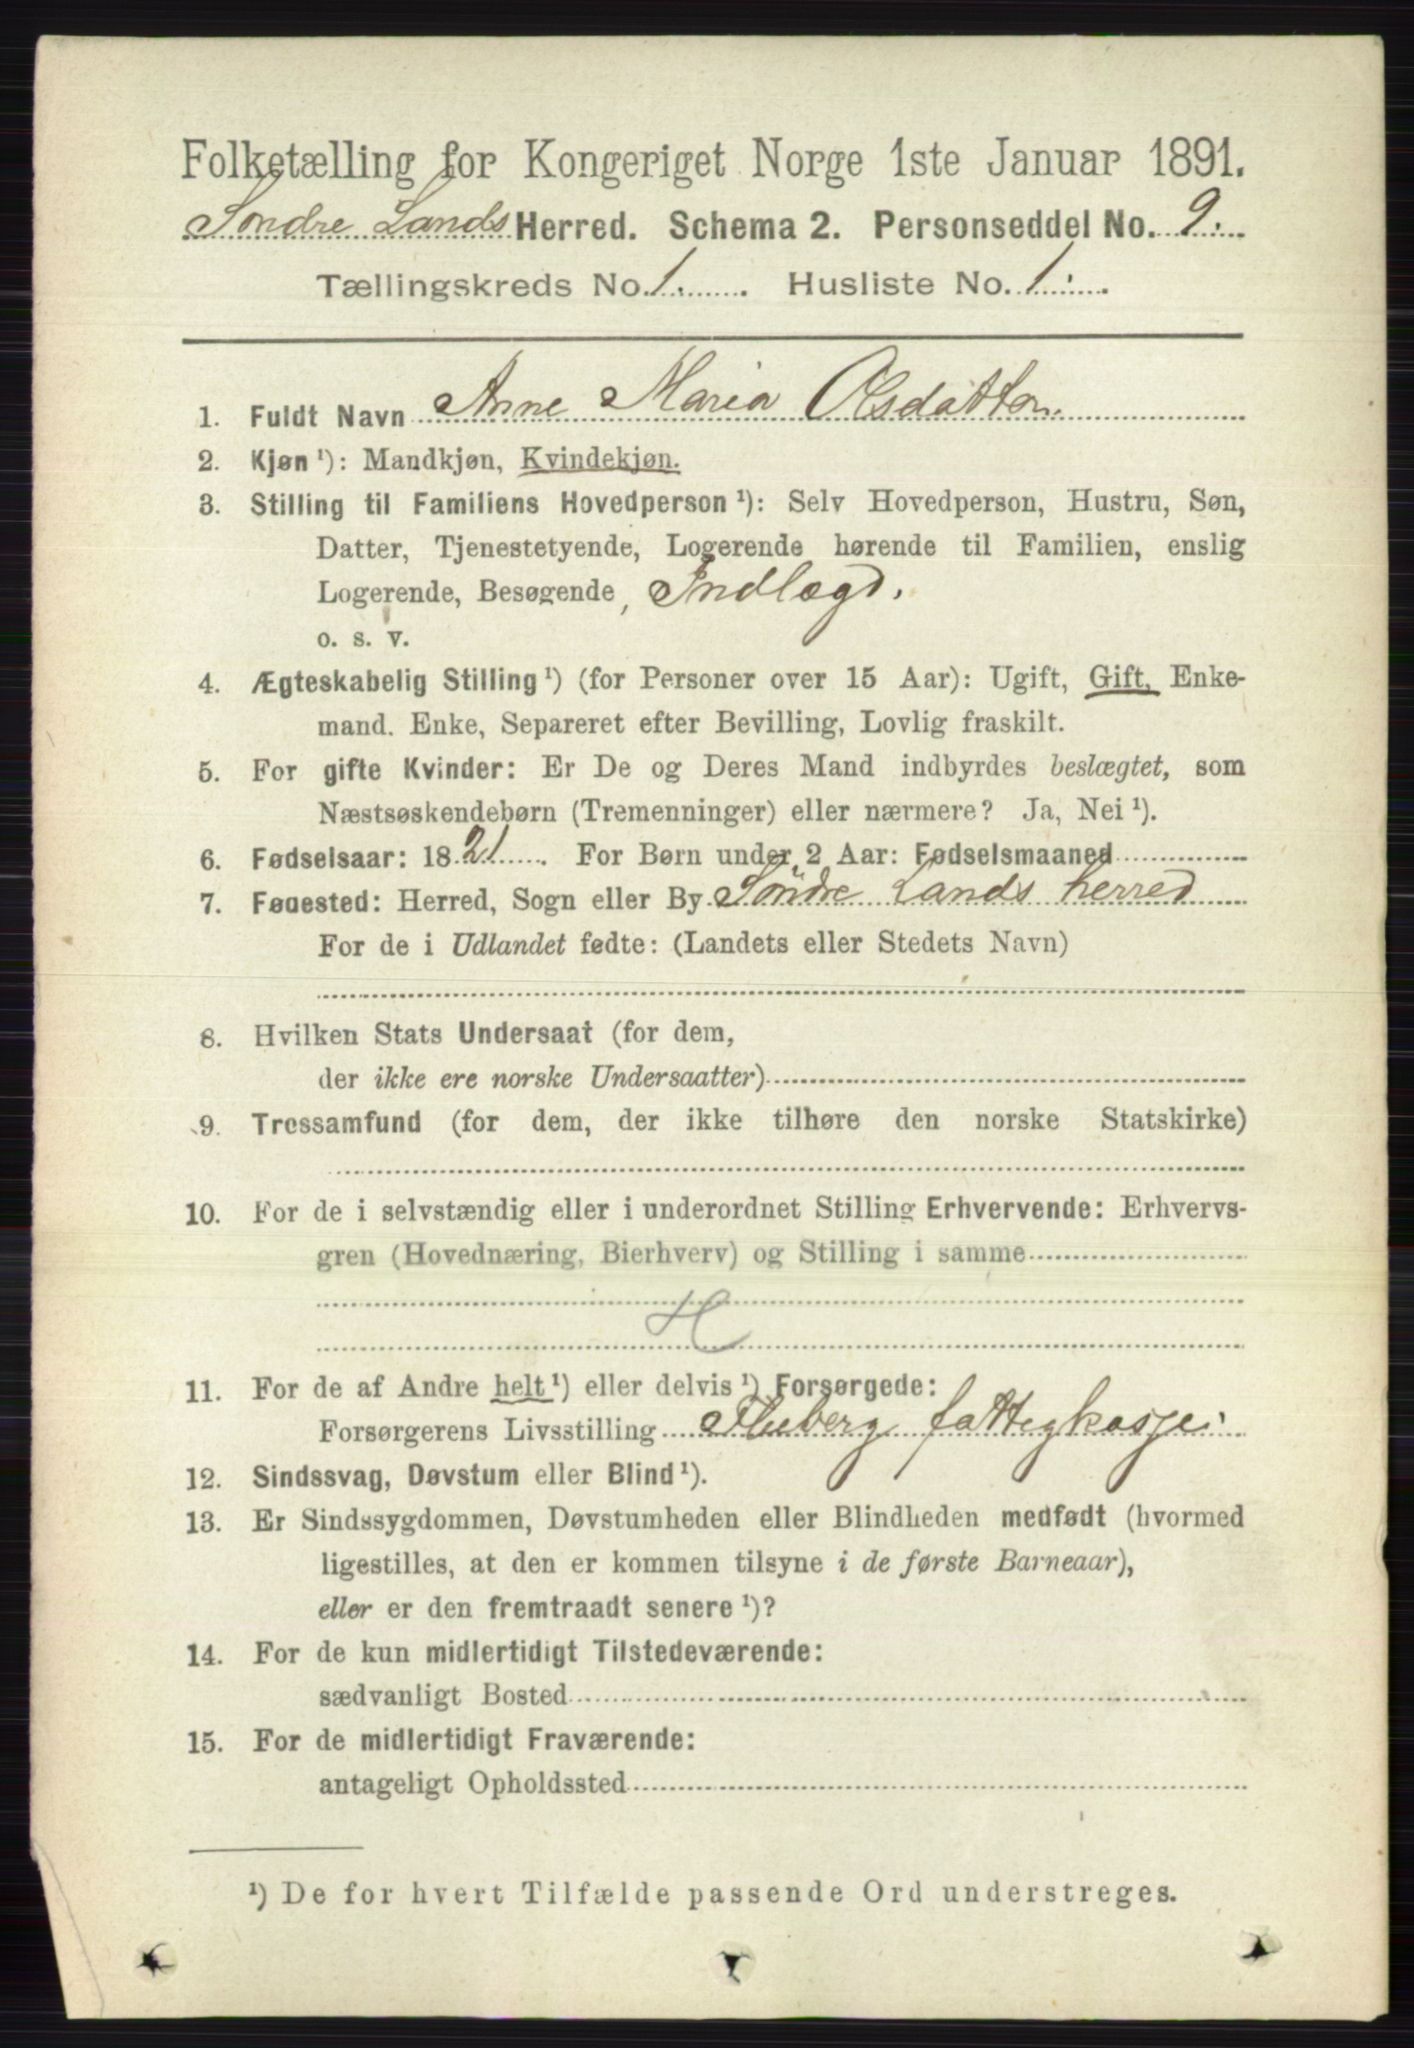 Folketælling for Kongeriget Norge 1ste Januar 1891.
Söndre Lands Herred. Schema 2. Personseddel No. 9.
Tællingskreds No. 1. Husliste No. 1.
1. Fuldt Navn Anne Maria Olsdatter
2. Kjøn ¹): Mandkjøn, Kvindekjøn.
3. Stilling til Familiens Hovedperson ¹): Selv Hovedperson, Hustru, Søn,
Datter, Tjenestetyende, Logerende hørende til Familien, enslig
Logerende, Besøgende, Indlægd.
o. s. v.
4. Ægteskabelig Stilling ¹) (for Personer over 15 Aar): Ugift, Gift, Enke-
mand. Enke, Separeret efter Bevilling, Lovlig fraskilt.
5. For gifte Kvinder: Er De og Deres Mand indbyrdes beslægtet, som
Næstsøskendebørn (Tremenninger) eller nærmere? Ja, Nei ¹).
6. Fødselsaar: 1821. For Børn under 2 Aar: Fødselsmaaned
7. Føuested: Herred, Sogn eller By Söndre Lands herred
For de i Udlandet fødte: (Landets eller Stedets Navn)
8. Hvilken Stats Undersaat (for dem,
der ikke ere norske Undersaatter)
9. Trossamfund (for dem, der ikke tilhøre den norske Statskirke)
10. For de i selvstændig eller i underordnet Stilling Erhvervende: Erhvervs-
gren (Hovednæring, Bierhverv) og Stilling i samme
H
11. For de af Andre helt ¹) eller delvis ¹) Forsørgede:
Forsørgerens Livsstilling Flueberg fattigkasse.
12. Sindssvag, Døvstum eller Blind ¹).
13. Er Sindssygdommen, Døvstumheden eller Blindheden medfødt (hvormed
ligestilles, at den er kommen tilsyne i de første Barneaar),
eller er den fremtraadt senere ¹)?
14. For de kun midlertidigt Tilstedeværende:
sædvanligt Bosted
15. For de midlertidigt Fraværende:
antageligt Opholdssted
¹) De for hvert Tilfælde passende Ord understreges.